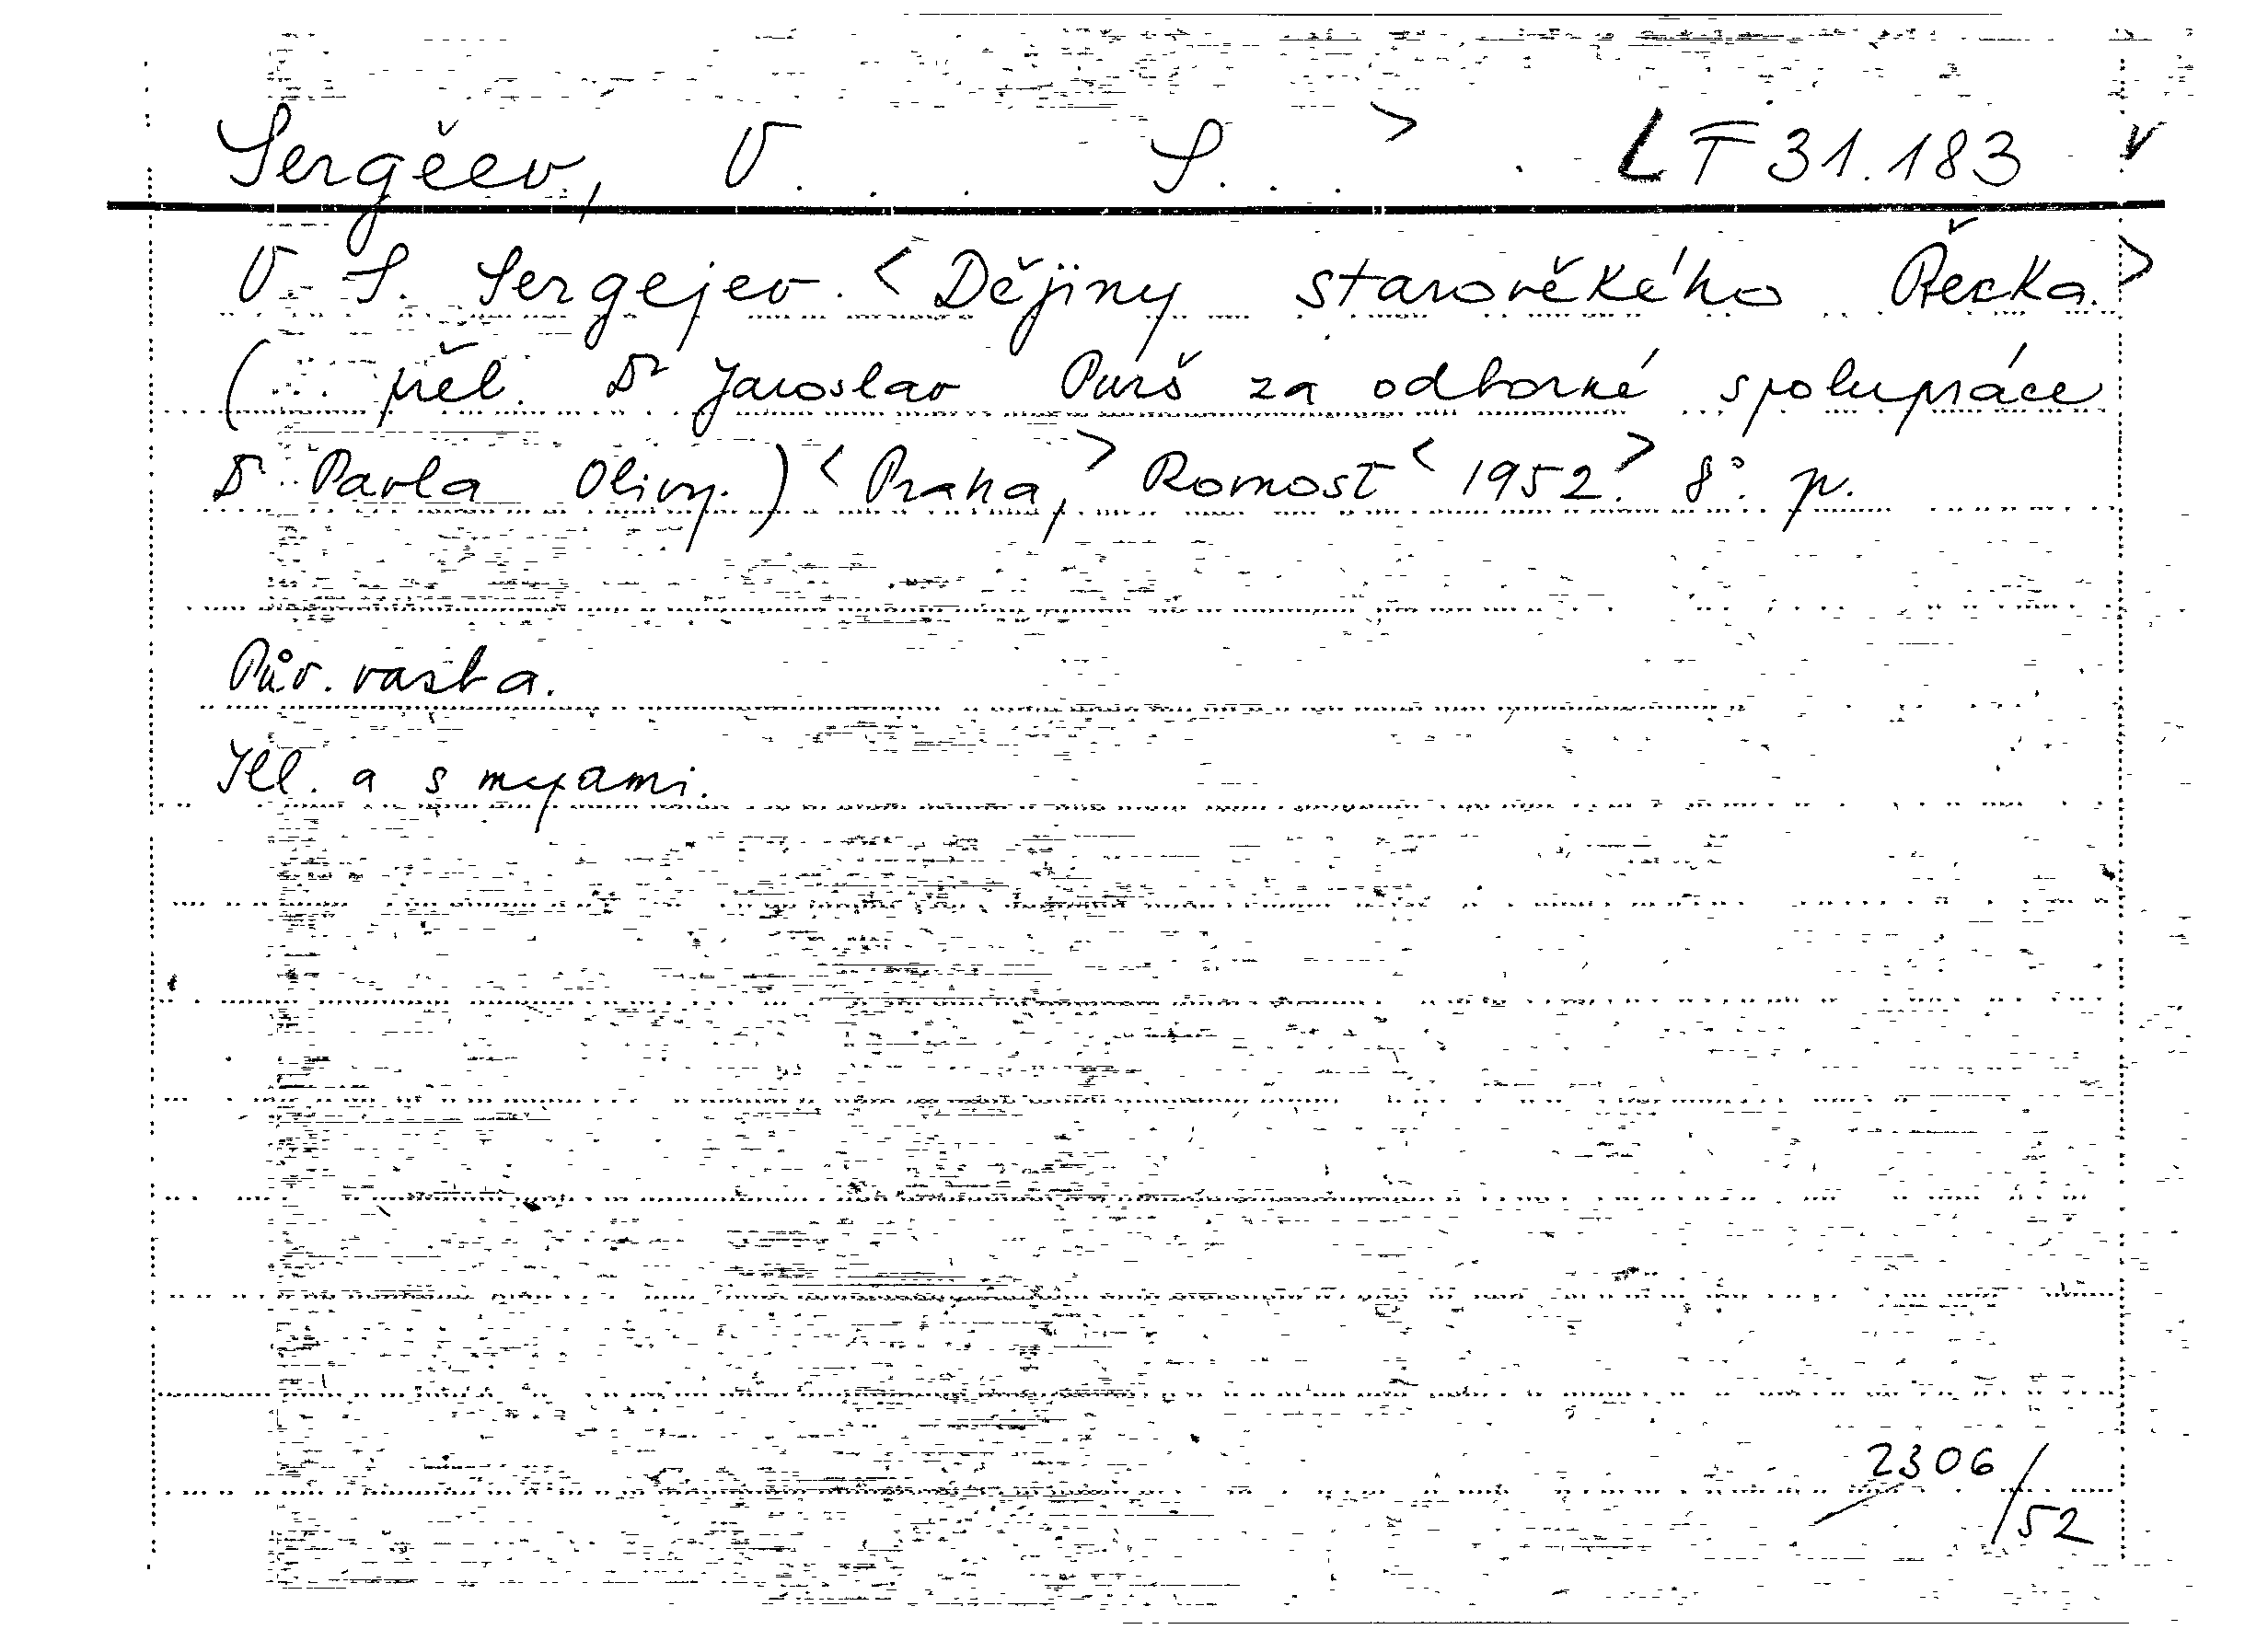 Sergěev, V. . . S. . . > . LT 31.183 v
V. S. Sergejev. <Dějiny starověkého Řecka.>
(... přel. Dr Jaroslav Purš za odborné spolupráce
Dr Pavla Olivy.) <Praha,> Rovnost <1952.> 8°. p.
Pův. vazba.
Ill. a s mapami.
2306/52